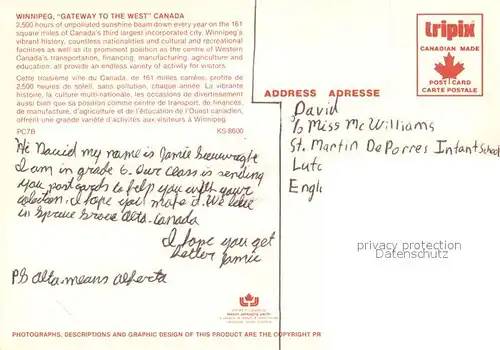 WINNIPEG, "GATEWAY TO THE WEST" CANADA
2,500 hours of unpolluted sunshine beam down every year on the 161
square miles of Canada's third largest incorporated city. Winnipeg's
vibrant history, countless nationalities and cultural and recreational
facilities as well as its prominent position as the centre of Western
Canada's transportation, financing, manufacturing, agriculture and
education, all provide an endless variety of activity for visitors.
Cette troisième ville du Canada, de 161 milles carrées, profite de
2,500 heures de soleil, sans pollution, chaque année. La vibrante
histoire, la culture multi-nationale, les occasions de divertissement
aussi bien que sa position comme centre de transport, de finances,
de manufacture, d'agriculture et de l'éducation de l'Ouest canadien,
offrent une grande variété d'activités aux visiteurs à Winnipeg.
PC7B KS-8600
Hi David my name is Jamie
I am in grade 6. Our class is sending
you post cards to help you with your
colection, I hope you make it. We live
in Spruce Grove Alta. Canada
I hope you get
better Jamie
PS alta. means alberta
tripix
CANADIAN MADE
POSTCARD
CARTE POSTALE
ADDRESS ADRESSE
David
c/o Miss McWilliams
St. Martin DePorres Infant School
Luto
Engl
privacy protection
Datenschutz
PHOTOGRAPHS, DESCRIPTIONS AND GRAPHIC DESIGN OF THIS PRODUCT ARE THE COPYRIGHT PR